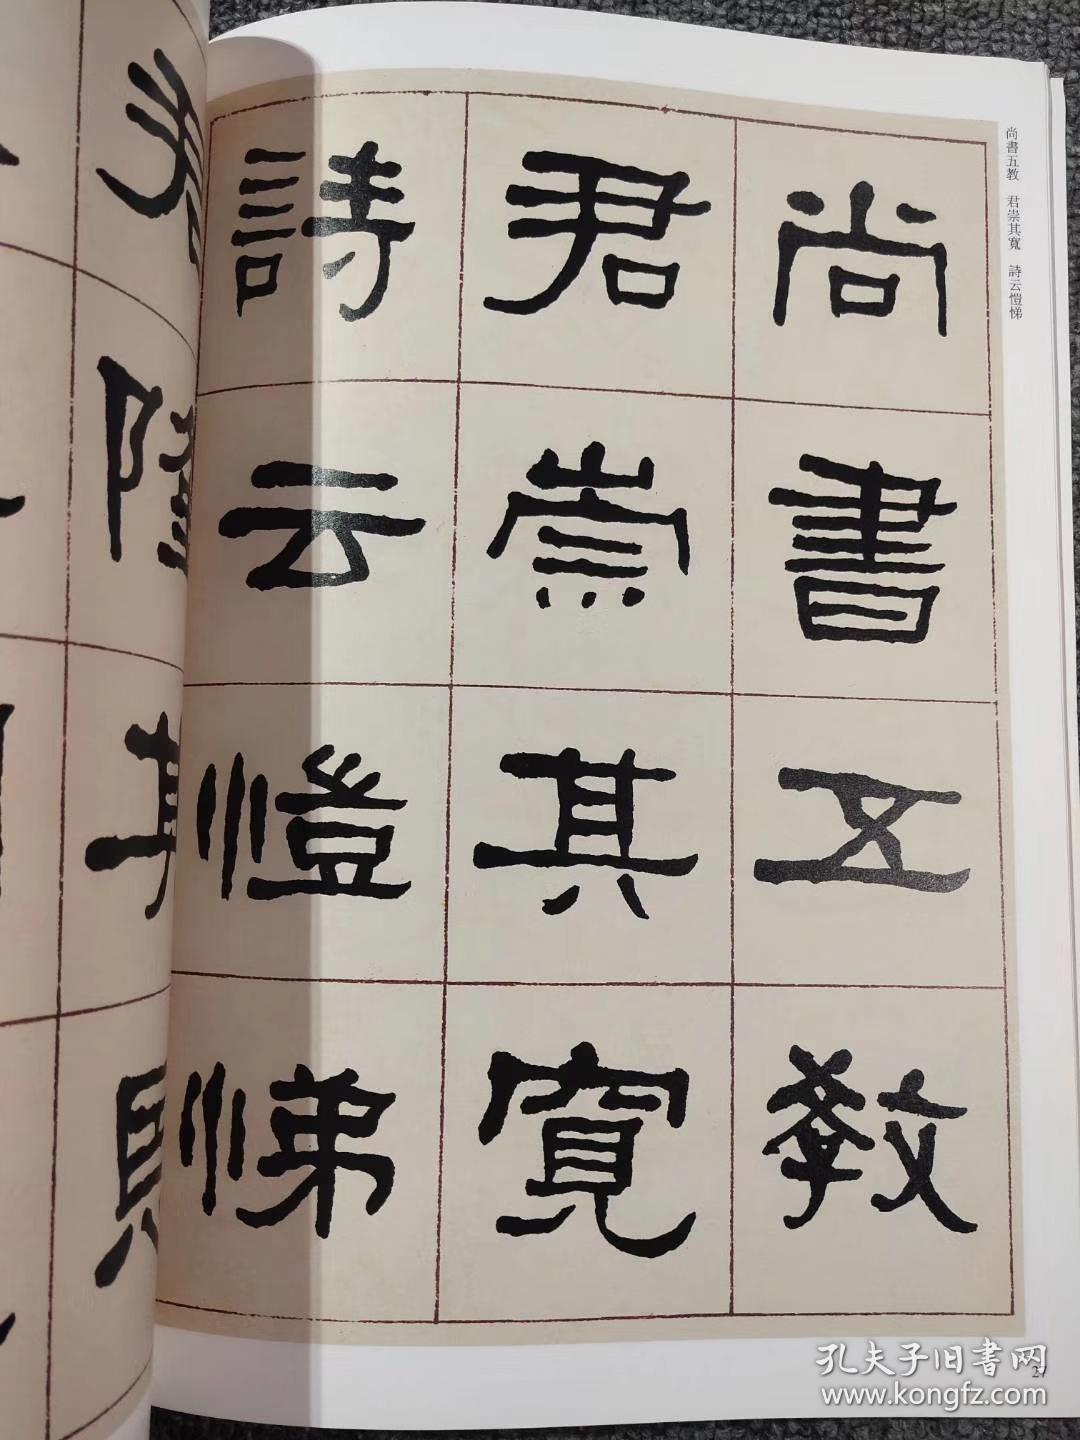 尚書五教
君崇其寬
詩云愷悌
尚書五教　君崇其寬　詩云愷悌
隆
其
27
孔夫子旧書网
www.kongfz.com